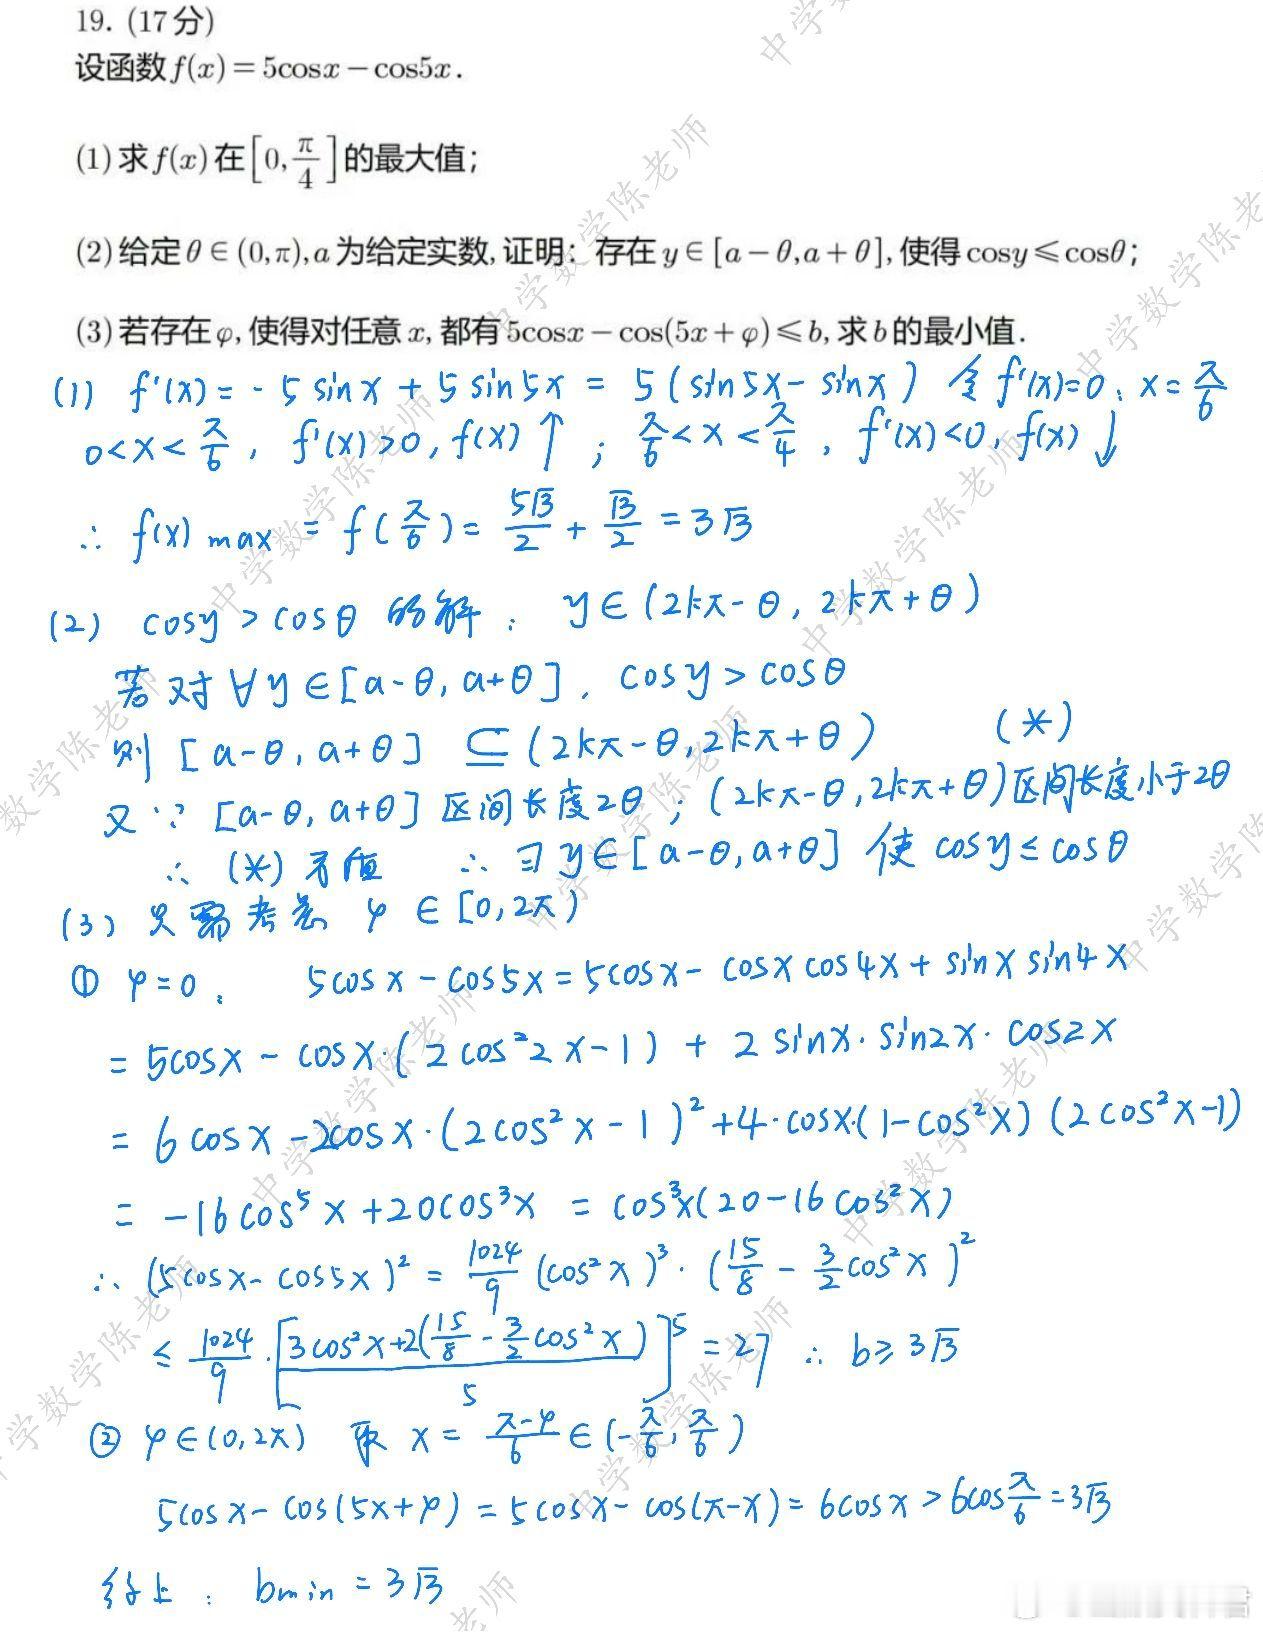 19. (17分)
设函数f(x)=5cosx-cos5x.
(1)求f(x)在[0,π/4]的最大值;
(2)给定θ∈(0,π),a为给定实数,证明:存在y∈[a-θ,a+θ],使得cosy≤cosθ;
(3)若存在φ,使得对任意x,都有5cosx-cos(5x+φ)≤b,求b的最小值.
(1) f'(x)=-5sinx+5sin5x=5(sin5x-sinx) 令f'(x)=0, x=π/6
0<x<π/6, f'(x)>0, f(x)↑; π/6<x<π/4, f'(x)<0, f(x)↓
∴ f(x)max=f(π/6)=5√3/2+√3/2=3√3
(2) cosy>cosθ的解: y∈(2kπ-θ, 2kπ+θ)
若对∀y∈[a-θ, a+θ], cosy>cosθ
则[a-θ, a+θ]⊆(2kπ-θ, 2kπ+θ) (*)
又∵[a-θ, a+θ]区间长度2θ; (2kπ-θ, 2kπ+θ)区间长度小于2θ
∴ (*)矛盾 ∴ ∃y∈[a-θ, a+θ] 使cosy≤cosθ
(3) 只需考虑 φ∈[0, 2π)
① φ=0, 5cosx-cos5x=5cosx-cosxcos4x+sinxsin4x
=5cosx-cosx·(2cos²2x-1)+2sinx·sin2x·cos2x
=6cosx-2cosx·(2cos²x-1)²+4·cosx·(1-cos²x)(2cos²x-1)
=-16cos⁵x+20cos³x=cos³x(20-16cos²x)
∴ (5cosx-cos5x)²=1024/9(cos²x)³·(15/8-3/2cos²x)²
≤1024/9·[(3cos²x+2(15/8-3/2cos²x))/5]⁵=27 ∴ b≥3√3
② φ∈(0, 2π) 取x=(π-φ)/6∈(-π/6, π/6)
5cosx-cos(5x+φ)=5cosx-cos(π-x)=6cosx>6cosπ/6=3√3
综上: bmin=3√3
中学数学陈老师
中学数学陈老师
中学数学陈老师
中学数学陈老师
中学数学陈老师
中学数学陈老师
中学数学陈老师
中学数学陈老师
中学数学陈老师
中学数学陈老师